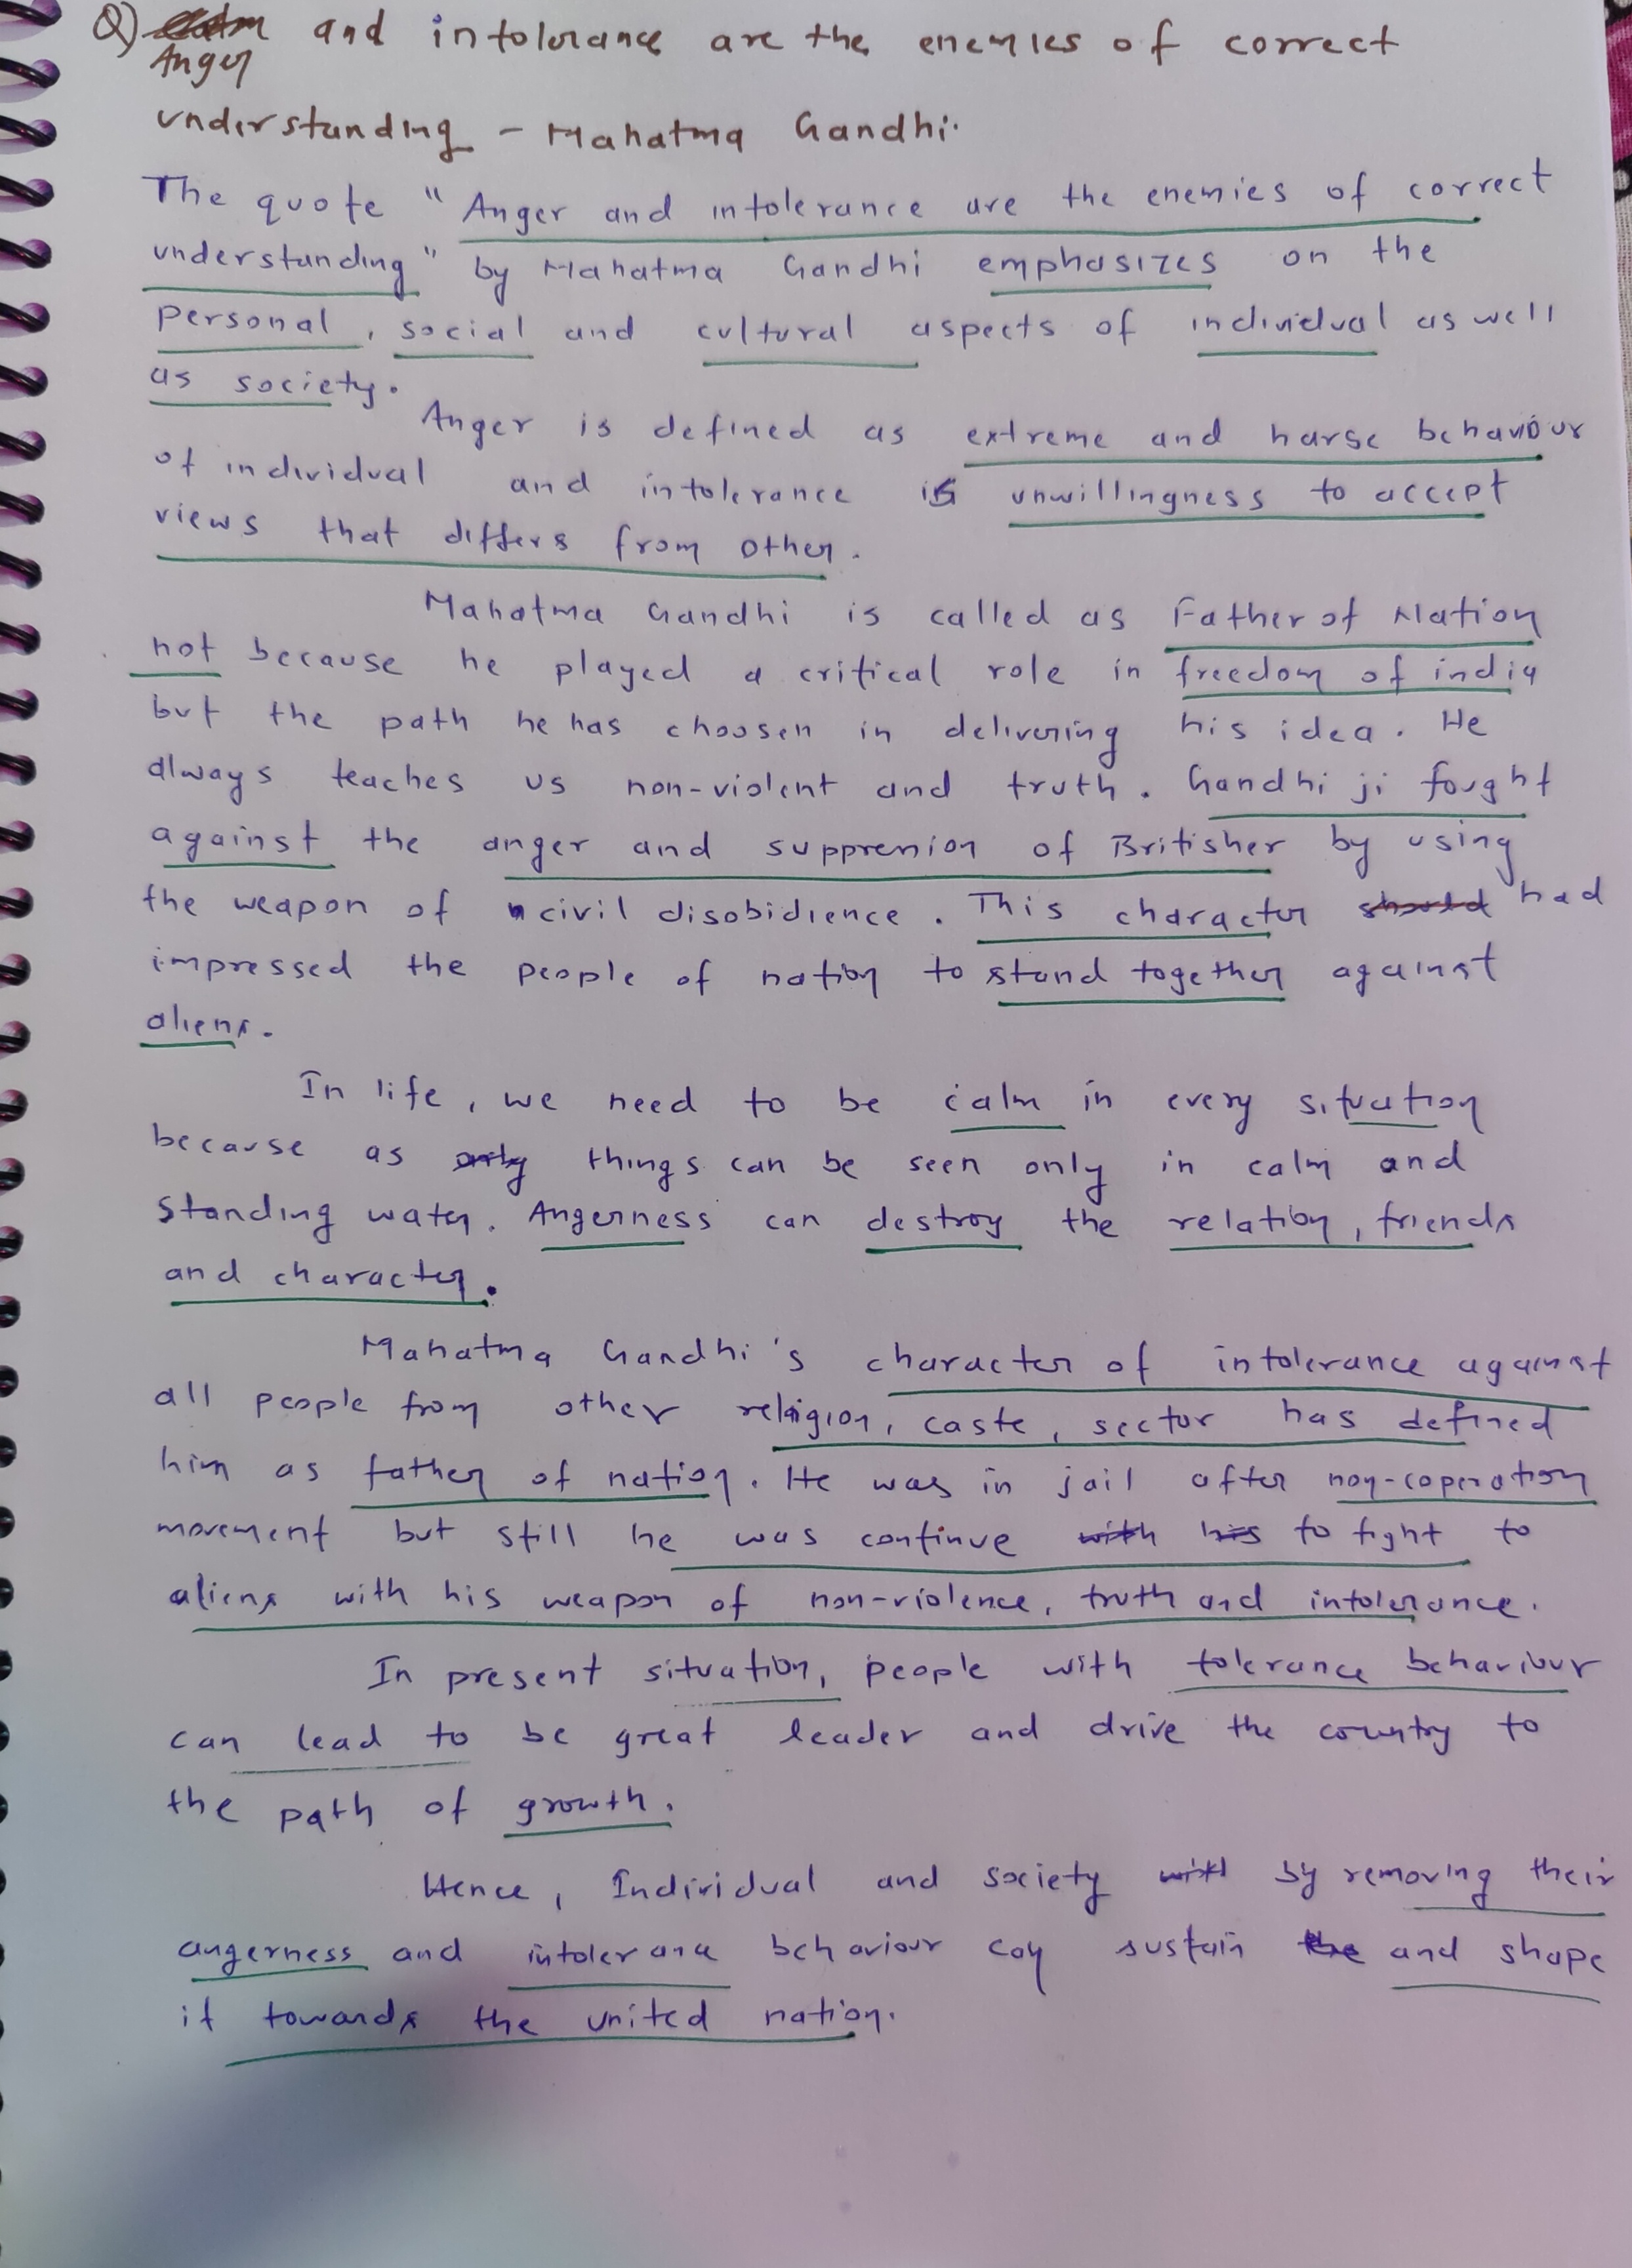 Q) Anger and intolerance are the enemies of correct
understanding - Mahatma Gandhi.
The quote "Anger and intolerance are the enemies of correct
understanding" by Mahatma Gandhi emphasizes on the
personal, social and cultural aspects of individual as well
as society.
Anger is defined as extreme and harse behaviour
of individual and intolerance is unwillingness to accept
views that differs from other.
Mahatma Gandhi is called as Father of Nation
not because he played a critical role in freedom of india
but the path he has choosen in delivering his idea. He
always teaches us non-violent and truth. Gandhi ji fought
against the anger and suppression of Britisher by using
the weapon of civil disobidience. This character should had
impressed the people of nation to stand together against
aliens.
In life, we need to be calm in every situation
because as only things can be seen only in calm and
standing water. Angerness can destroy the relation, friends
and character.
Mahatma Gandhi's character of intolerance against
all people from other religion, caste, sector has defined
him as father of nation. He was in jail after non-coperation
movement but still he was continue with his to fight to
aliens with his weapon of non-violence, truth and intolerance.
In present situation, people with tolerance behaviour
can lead to be great leader and drive the country to
the path of growth.
Hence, Individual and society with by removing their
angerness and intolerance behaviour can sustain the and shape
it towards the united nation.